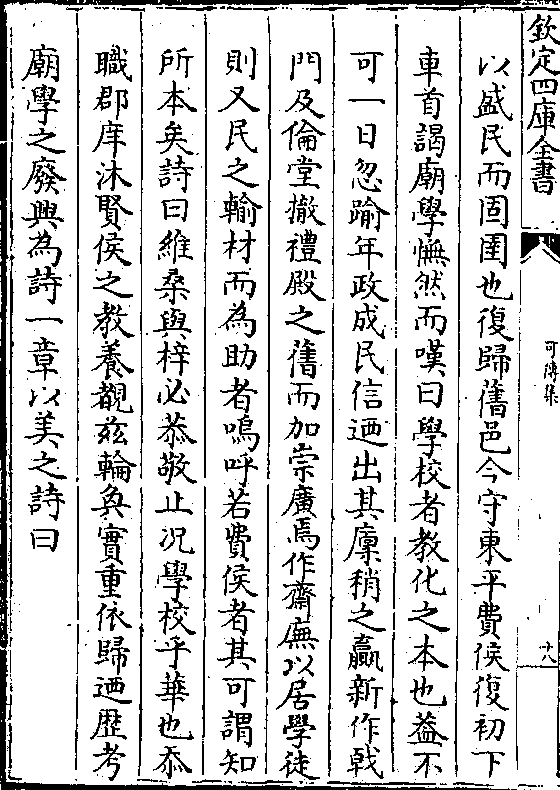 欽定四庫全書
可傳集
十八
以盛民而固圉也復歸舊邑今守東平費侯復初下
車首謁廟學憮然而嘆曰學校者教化之本也葢不
可一日忽踰年政成民信迺出其廪稍之贏新作戟
門及倫堂撤禮殿之舊而加崇廣焉作齋廡以居學徒
則又民之輸材而為助者嗚呼若費侯者其可謂知
所本矣詩曰維桑與梓必恭敬止况學校乎華也忝
職郡庠沐賢侯之教養覩兹輪奐實重依歸迺歴考
廟學之廢興為詩一章以美之詩曰